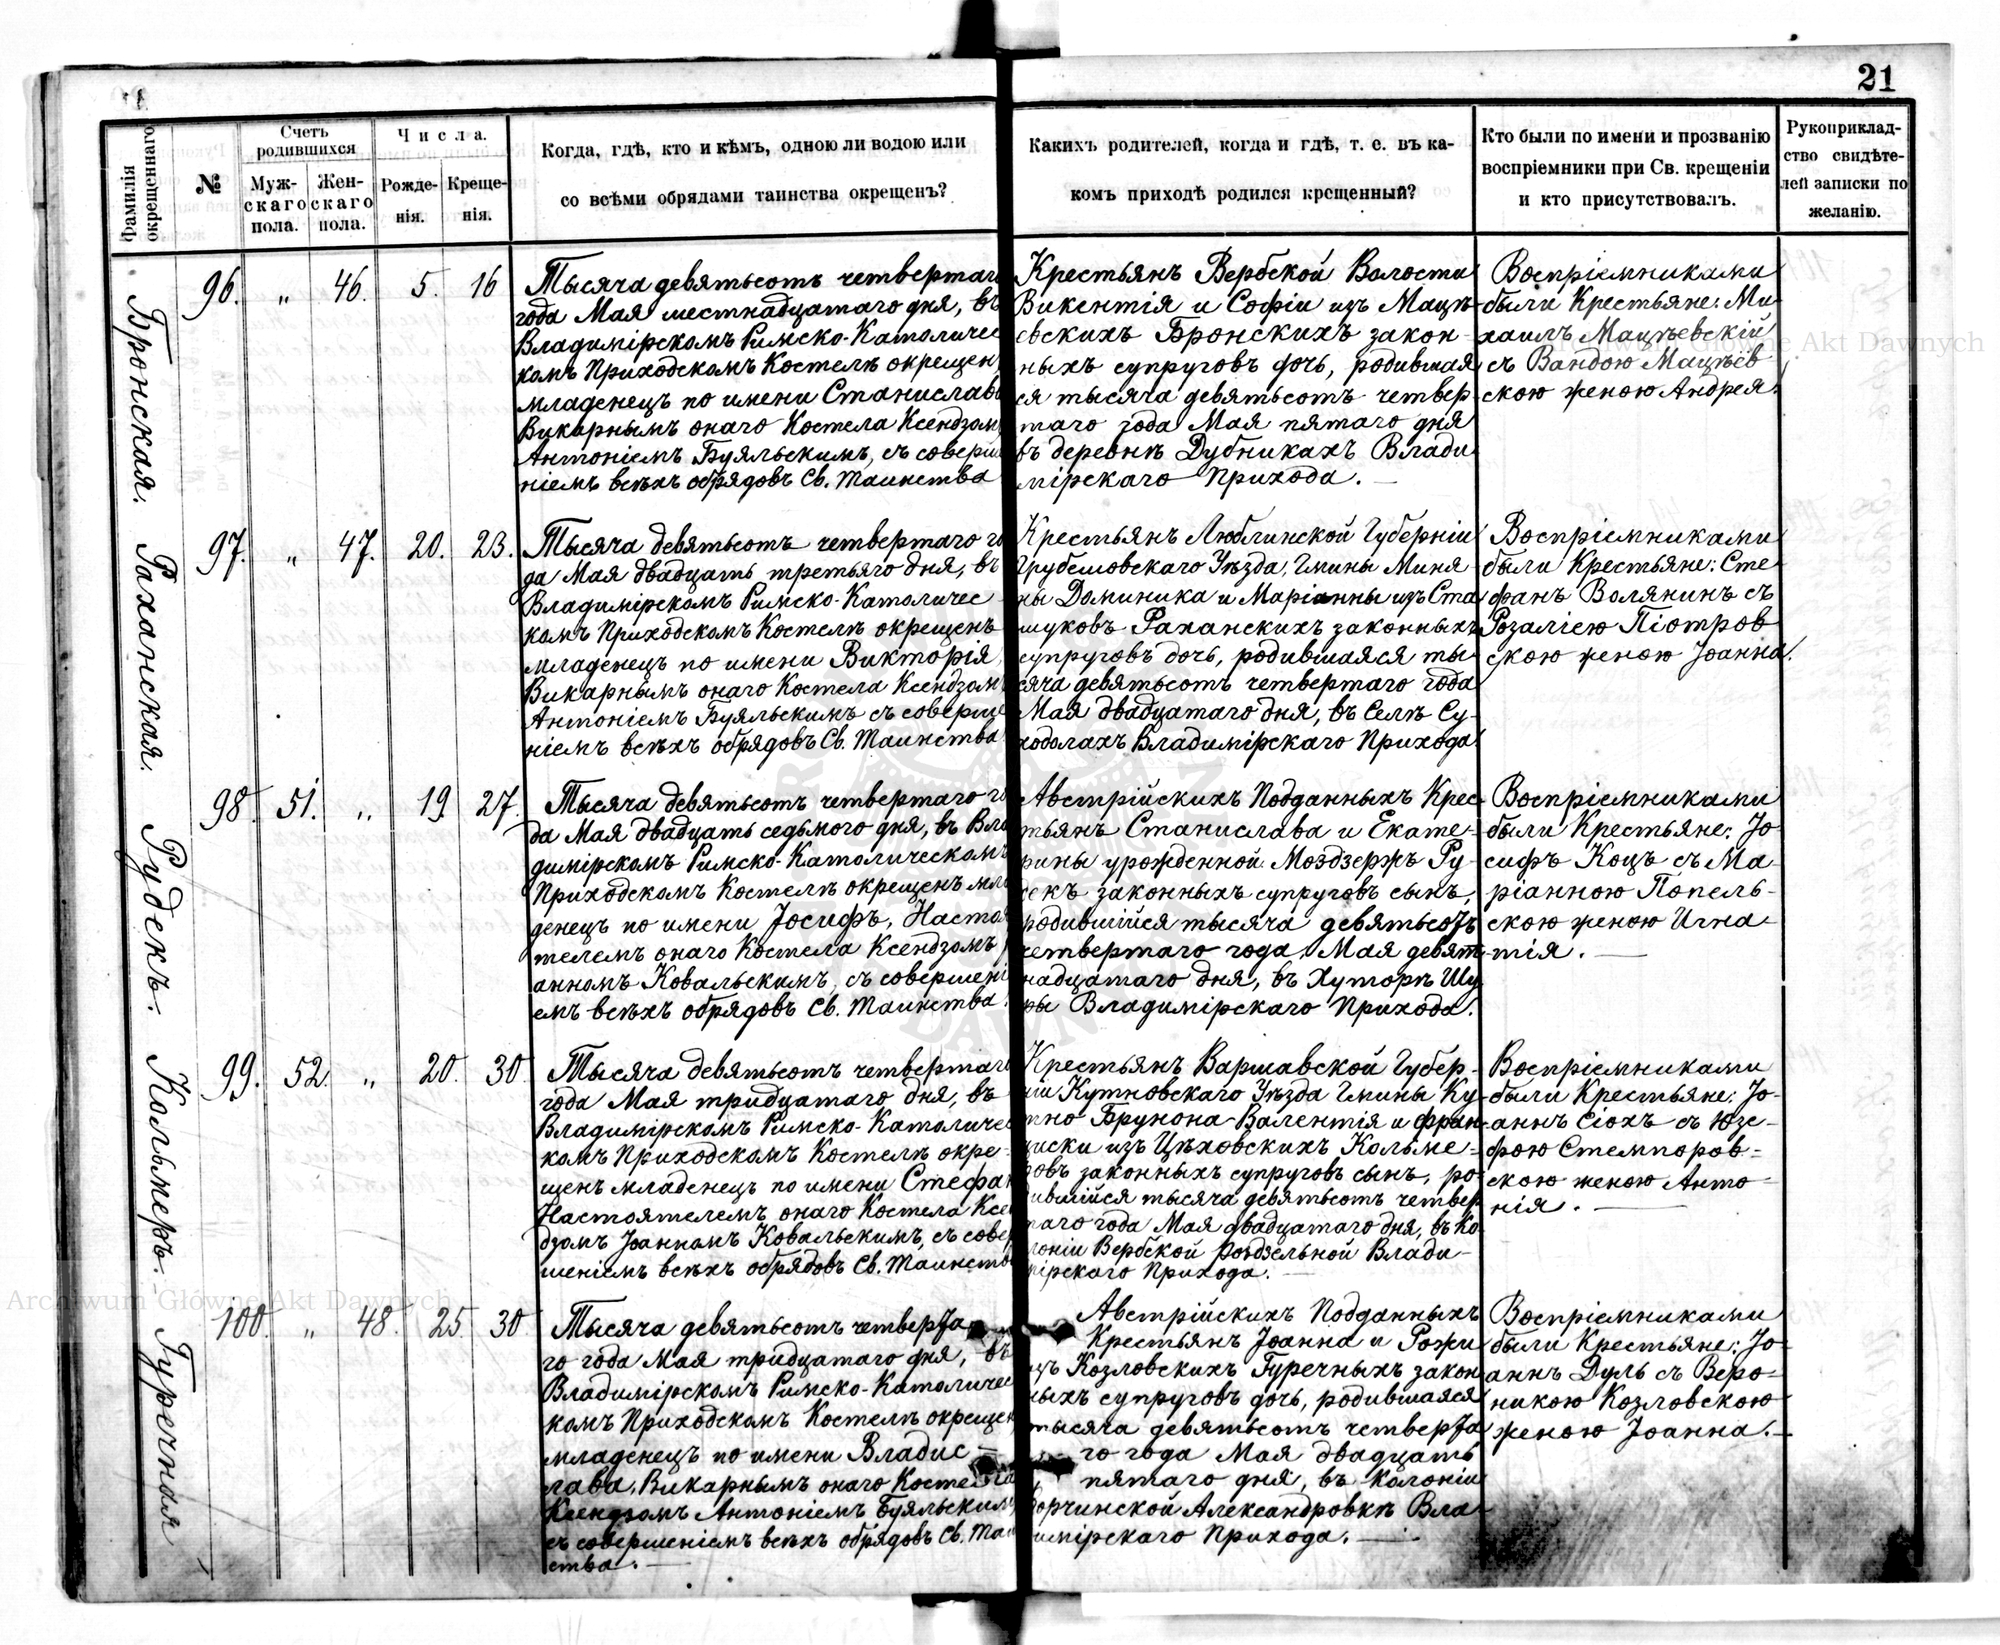 21
Фамилія
окрещеннаго.
№
Счетъ
родившихся
Муж-
скаго
пола.
Жен-
скаго
пола.
Числа.
Рожде-
нія.
Креще-
нія.
Когда, гдѣ, кто и кѣмъ, одною ли водою или
со всѣми обрядами таинства окрещенъ?
Каких‎ъ родителей, когда и гдѣ, т. е. въ ка-
комъ приходѣ родился крещенный?
Кто были по имени и прозванію
воспріемники при Св. крещеніи
и кто присутствовалъ.
Рукоприклад-
ство свидѣте-
лей записки по
желанію.
Бронская.
96. „ 46. 5. 16
Тысяча девятьсотъ четвертаго
года Мая шестнадцатаго дня, въ
Владимірскомъ Римско-Католичес
комъ Приходскомъ Костелѣ окрещенъ
младенецъ по имени Станислава
Викарнымъ онаго Костела Ксендзомъ
Антоніемъ Буяльскимъ, съ соверше
ніемъ всѣхъ обрядовъ Св. Таинства
Крестьянъ Вербской Волости
Викентія и Софіи изъ Мацѣ-
евскихъ Бронскихъ закон-
ныхъ супруговъ дочь, родившая
ся тысяча девятьсотъ четвер
таго года Мая пятаго дня
въ деревнѣ Дубникахъ Влади
мірскаго Прихода. —
Воспріемниками
были Крестьяне: Ми-
хаилъ Мацѣевскій
съ Вандою Мацѣев
скою женою Андрея.
Раханская.
97. „ 47. 20. 23.
Тысяча девятьсотъ четвертаго го
да Мая двадцать третьяго дня, въ
Владимірскомъ Римско-Католичес-
комъ Приходскомъ Костелѣ окрещенъ
младенецъ по имени Викторія,
Викарнымъ онаго Костела Ксендзомъ
Антоніемъ Буяльскимъ съ соверше
ніемъ всѣхъ обрядовъ Св. Таинства
Крестьянъ Люблинской Губерніи
Грубешовскаго Уѣзда, Гмины Миня-
ны Доминика и Маріанны изъ Ста
шуковъ Раханскихъ законныхъ
супруговъ дочь, родившаяся ты-
сяча девятьсотъ четвертаго года
Мая двадцатаго дня, въ Селѣ Су-
ходолахъ Владимірскаго Прихода.
Воспріемниками
были Крестьяне: Сте
фанъ Волянинъ съ
Розаліею Піотров
скою женою Іоанна.
Рудекъ.
98. 51. „ 19. 27.
Тысяча девятьсотъ четвертаго го
да Мая двадцать седьмого дня, въ Вла
димірскомъ Римско-Католическомъ
Приходскомъ Костелѣ окрещенъ мла
денецъ по имени Іосифъ, Настоя
телемъ онаго Костела Ксендзомъ Іо
анномъ Ковальскимъ, съ совершені
емъ всѣхъ обрядовъ Св. Таинства.
Австрійскихъ Подданныхъ Крес-
тьянъ Станислава и Екате-
рины урожденной Моздзержъ Ру-
декъ законныхъ супруговъ сынъ,
родившійся тысяча девятьсотъ
четвертаго года Мая девят-
надцатаго дня, въ Хуторѣ Шу
ры Владимірскаго Прихода.
Воспріемниками
были Крестьяне: Іо-
сифъ Коцъ съ Ма-
ріанною Попель-
скою женою Игна-
тія. —
Кольмеръ.
99. 52. „ 20. 30.
Тысяча девятьсотъ четвертаго
года Мая тридцатаго дня, въ
Владимірскомъ Римско-Католичес
комъ Приходскомъ Костелѣ окре-
щенъ младенецъ по имени Стефанъ
Настоятелемъ онаго Костела Ксен
дзомъ Іоанномъ Ковальскимъ, съ совер
шеніемъ всѣхъ обрядовъ Св. Таинства
Крестьянъ Варшавской Губер-
ніи Кутновскаго Уѣзда Гмины Ку
тно Брунона-Валентія и Фран-
циски изъ Цѣховскихъ Кольме-
ровъ законныхъ супруговъ сынъ, ро-
дившійся тысяча девятьсотъ четвер
таго года Мая двадцатаго дня, въ Ко
лоніи Вербской Роздзельной Влади-
мірскаго Прихода. —
Воспріемниками
были Крестьяне: Іо-
аннъ Сіохъ съ Юзе-
фою Стемпоров-
скою женою Анто-
нія. —
Гуречная
100. „ 48. 25. 30.
Тысяча девятьсотъ четверта
го года Мая тридцатаго дня, въ
Владимірскомъ Римско-Католичес
комъ Приходскомъ Костелѣ окрещенъ
младенецъ по имени Владис-
лава, Викарнымъ онаго Костела
Ксендзомъ Антоніемъ Буяльскимъ,
съ совершеніемъ всѣхъ обрядовъ Св. Таин
ства. —
Австрійскихъ Подданныхъ
Крестьянъ Іоанна и Рожи
изъ Козловскихъ Гуречныхъ закон
ныхъ супруговъ дочь, родившаяся
тысяча девятьсотъ четверта
го года Мая двадцать
пятаго дня, въ колоніи
Ворчинской Александровкѣ Вла
димірскаго Прихода. —
Воспріемниками
были Крестьяне: Іо-
аннъ Дуль съ Веро-
никою Козловскою
женою Іоанна. —
Archiwum Główne Akt Dawnych